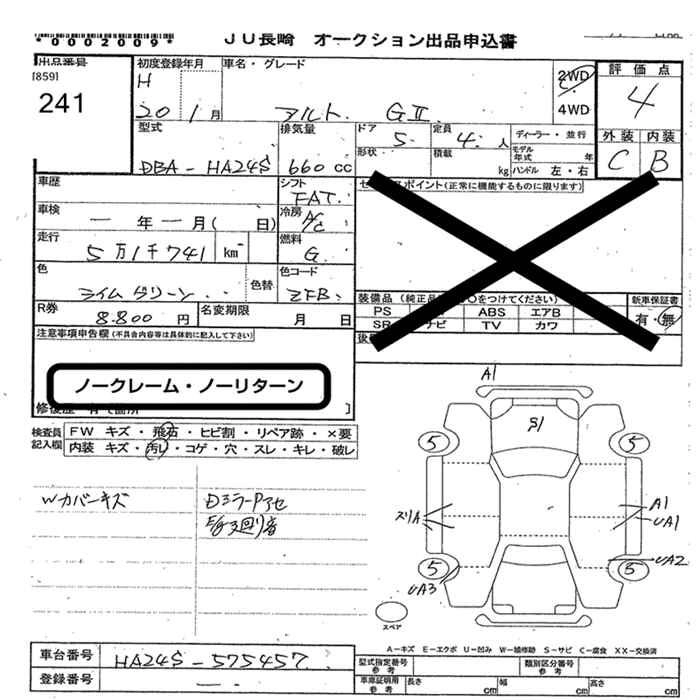 *0002009* JU長崎 オークション出品申込書
出品番号 初度登録年月 車名・グレード 2WD 評価点
[859] H 4WD 4
241 20 1月 アルト GⅡ
型式 排気量 ドア 5 定員 4人 ディーラー・並行 外装 内装
DBA-HA24S 660cc 形状 積載 kg モデル年式 年 ハンドル 左・右 C B
車歴 シフト FAT ポイント(正常に機能するものに限ります)
車検 ー年ー月( 日) 冷房 A/C
走行 5万1千741 km 燃料 G
色 ライムグリーン 色替 色コード ZFB 装備品 をつけてください) 新車保証書
R券 8.800円 名変期限 月 日 PS ABS エアB 有・無
注意事項申告欄(不具合内容等は具体的に記入して下さい) SR ナビ TV カワ
ノークレーム・ノーリターン
修復歴 ]
検査員記入欄 FW キズ・飛石・ヒビ割・リペア跡・×要
内装 キズ・汚れ・コゲ・穴・スレ・キレ・破レ
A1
S1
5 5
Wカバーキズ DミラーPアセ
E/G廻り音
スリA A1
UA1
5 5 UA2
UA3
スペア
A-キズ E-エクボ U-凹み W-補修跡 S-サビ C-腐食 XX-交換済
車台番号 HA24S-575457 型式指定番号 参考 類別区分番号 参考
登録番号 ー 車庫証明用 参考 長さ cm 幅 cm 高さ cm